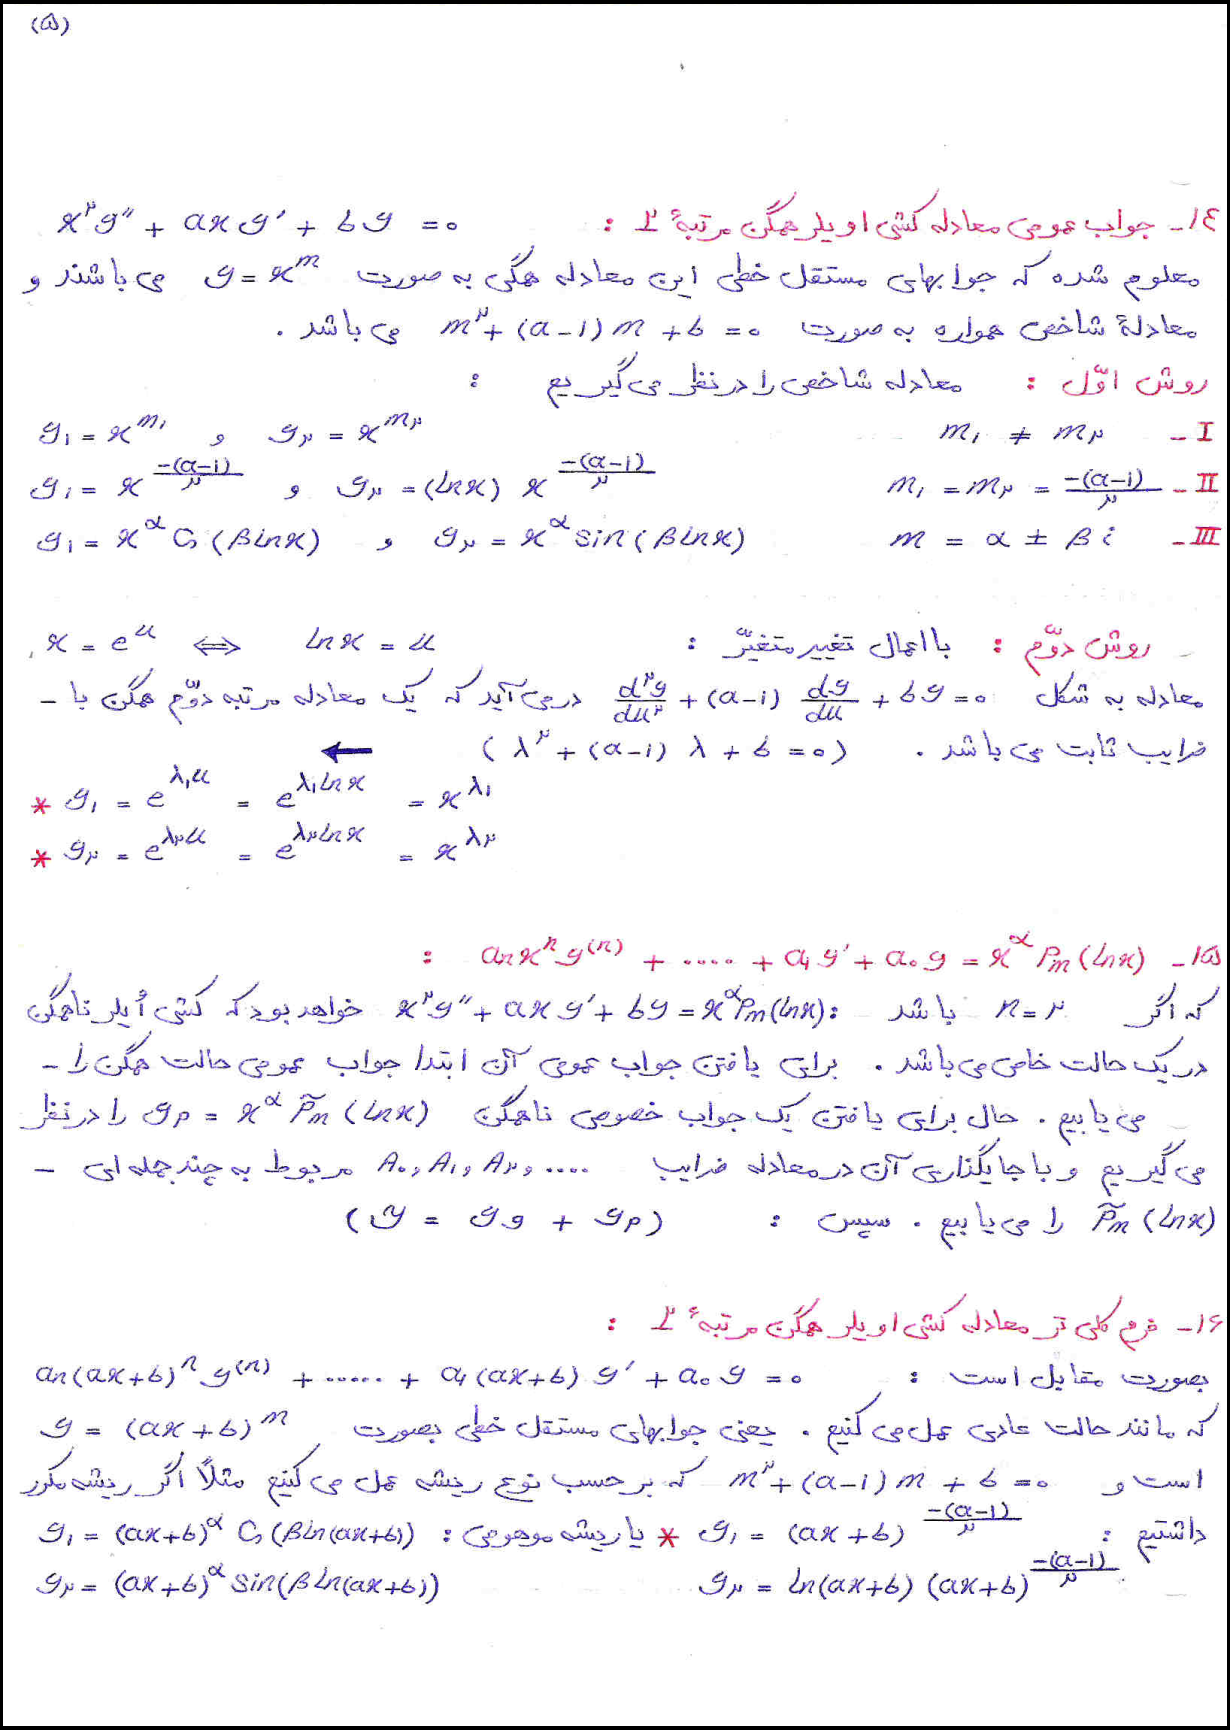 (۵)
۱۴- جواب عمومی معادله کشی اویلر همگن مرتبهٔ ۲ : x²y″ + axy′ + by = ۰
معلوم شده که جوابهای مستقل خطی این معادله همگی به صورت y = x^m می باشند و
معادلهٔ شاخص همواره به صورت m² + (a-۱)m + b = ۰ می باشد .
روش اوّل : معادله شاخص را در نظر می گیریم :
I - m₁ ≠ m₂ y₁ = x^m₁ و y₂ = x^m₂
II - m₁ = m₂ = -(a-۱)/۲ y₁ = x^(-(a-۱)/۲) و y₂ = (ln x) x^(-(a-۱)/۲)
III - m = α ± βi y₁ = x^α Cos(β ln x) و y₂ = x^α Sin(β ln x)
روش دوّم : با اعمال تغییر متغیّر : ln x = u ⇔ x = e^u
معادله به شکل d²y/du² + (a-۱) dy/du + by = ۰ در می آید که یک معادله مرتبه دوّم همگن با -
ضرایب ثابت می باشد . (λ² + (a-۱)λ + b = ۰) ←
* y₁ = e^(λ₁u) = e^(λ₁ ln x) = x^λ₁
* y₂ = e^(λ₂u) = e^(λ₂ ln x) = x^λ₂
۱۵- aₙxⁿy⁽ⁿ⁾ + ..... + a₁y′ + a₀y = x^α Pm(ln x) :
که اگر n = ۲ باشد : x²y″ + axy′ + by = x^α Pm(ln x) خواهد بود که کشی اُیلر ناهمگن
در یک حالت خاص می باشد . برای یافتن جواب عمومی آن ابتدا جواب عمومی حالت همگن را -
می یابیم . حال برای یافتن یک جواب خصوصی ناهمگن yp = x^α P̃m(ln x) را در نظر
می گیریم و با جایگذاری آن در معادله ضرایب A₀, A₁, A₂, .... مربوط به چند جمله ای -
P̃m(ln x) را می یابیم . سپس : (y = yg + yp)
۱۶- فرم کلی تر معادله کشی اویلر همگن مرتبهٔ ۲ :
بصورت مقابل است : aₙ(ax+b)ⁿy⁽ⁿ⁾ + ..... + a₁(ax+b)y′ + a₀y = ۰
که مانند حالت عادی عمل می کنیم . یعنی جوابهای مستقل خطی بصورت y = (ax+b)^m
است و m² + (a-۱)m + b = ۰ که بر حسب نوع ریشه عمل می کنیم مثلاً اگر ریشه مکرر
داشتیم : y₁ = (ax+b)^(-(a-۱)/۲) * یا ریشه موهومی : y₁ = (ax+b)^α Cos(β ln(ax+b))
y₂ = ln(ax+b) (ax+b)^(-(a-۱)/۲) y₂ = (ax+b)^α Sin(β ln(ax+b))